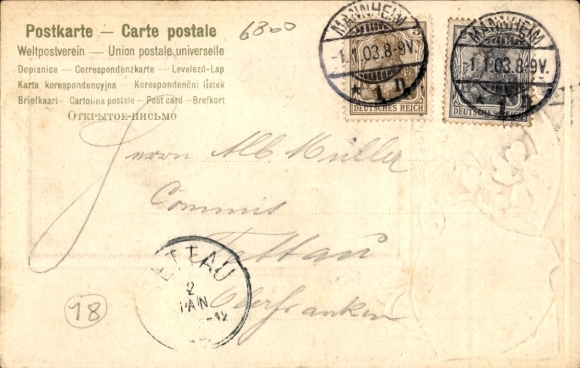 Postkarte – Carte postale
Weltpostverein – Union postale universelle
Dopisnice – Correspondenzkarte – Levelező-Lap
Karta korespondencyjna – Korespondenční lístek
Briefkaart – Cartolina postale – Post card – Brefkort
Открытое-письмо
6800
MANNHEIM
-1.1.03.8-9V.
* 1 n
DEUTSCHES REICH
3
MANNHEIM
-1.1.03.8-9V.
* 1 n
DEUTSCHES REICH
Herrn Alb. Müller
Commis
Tettau
Oberfranken
ETTAU
2
JAN
18